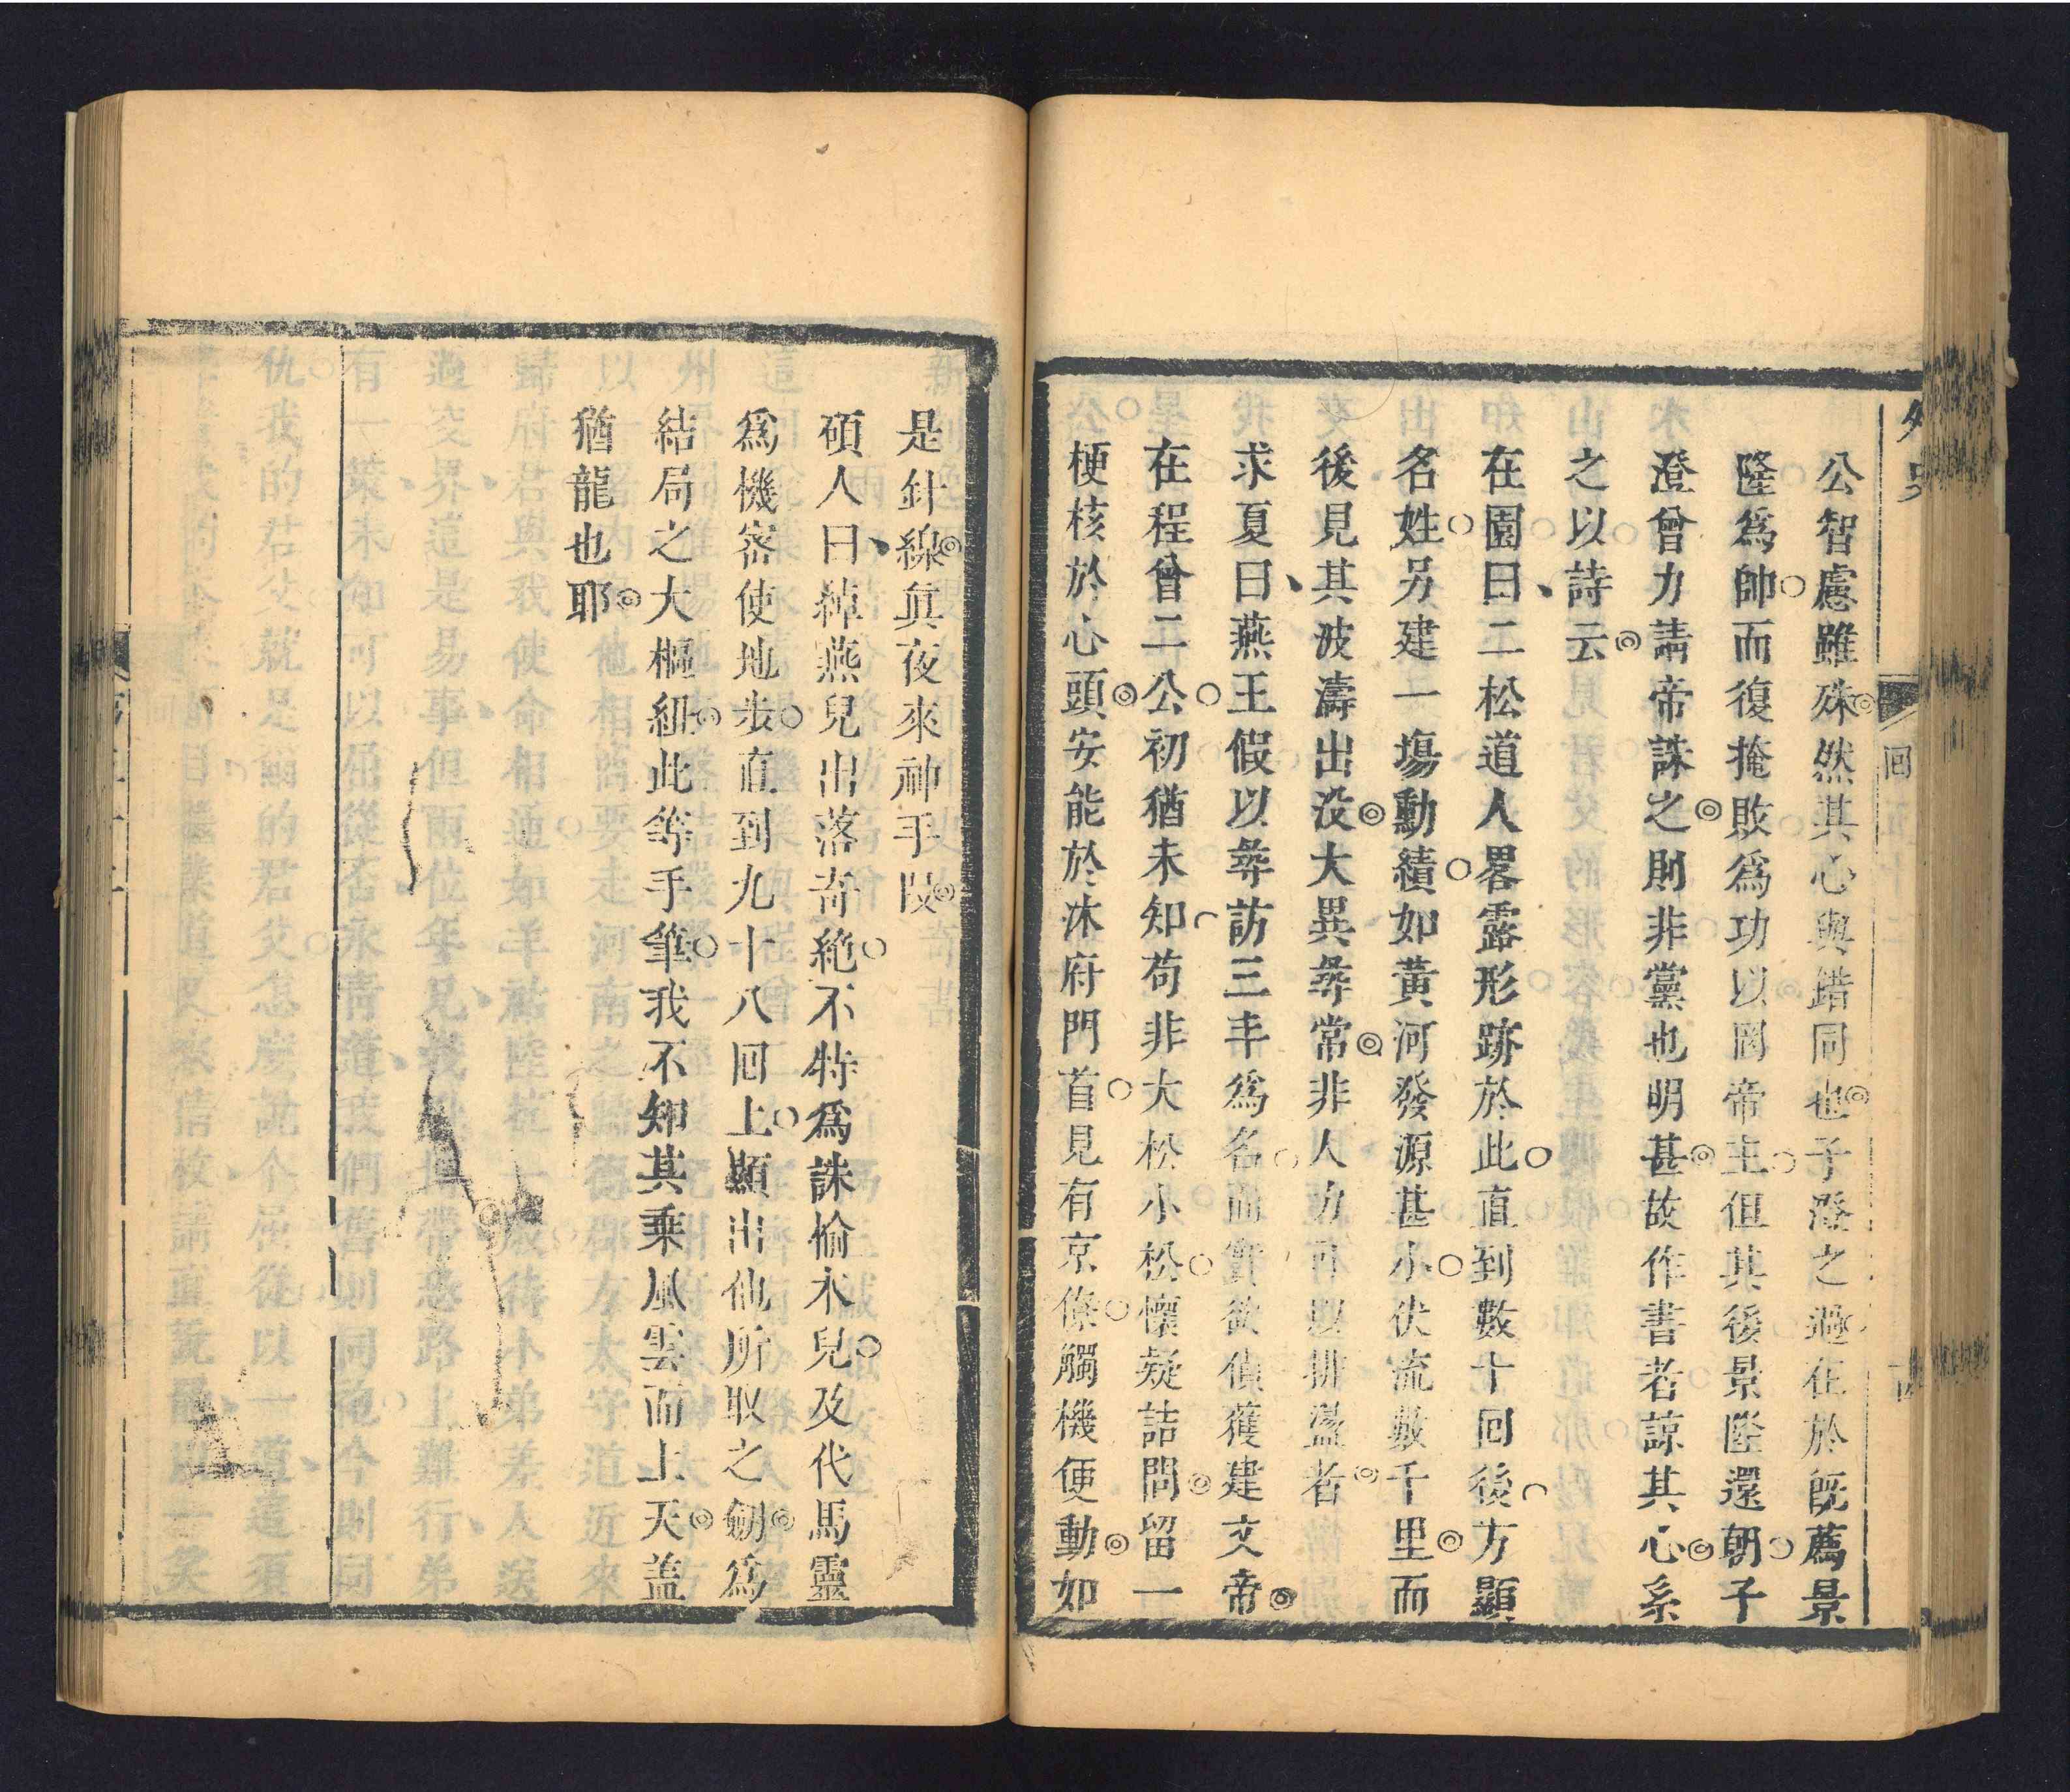 外史
回
公智慮雖殊然其心與錯同也子澄之過在於旣薦景
隆爲帥而復掩敗爲功以罔帝主但其後景隆還朝子
澄曾力請帝誅之則非黨也明甚故作書者諒其心系
之以詩云
在園曰二松道人畧露形跡於此直到數十回後方顯
名姓另建一塲勳績如黃河發源甚小伏流數千里而
後見其波濤出没大異尋常非人力可以排盪者
求夏曰燕王假以尋訪三丰爲名而實欲偵獲建文帝
在程曾二公初猶未知苟非大松小松懷疑詰問留一
梗核於心頭安能於沐府門首見有京傺觸機便動如
是針線眞夜來神手叚
碩人曰綽燕兒出落奇絶不特爲誅偷木兒及代馬靈
爲機宻使地步直到九十八回上顯出仙所取之劒爲
結局之大樞紐此等手筆我不知其乗風雲而上天盖
猶龍也耶